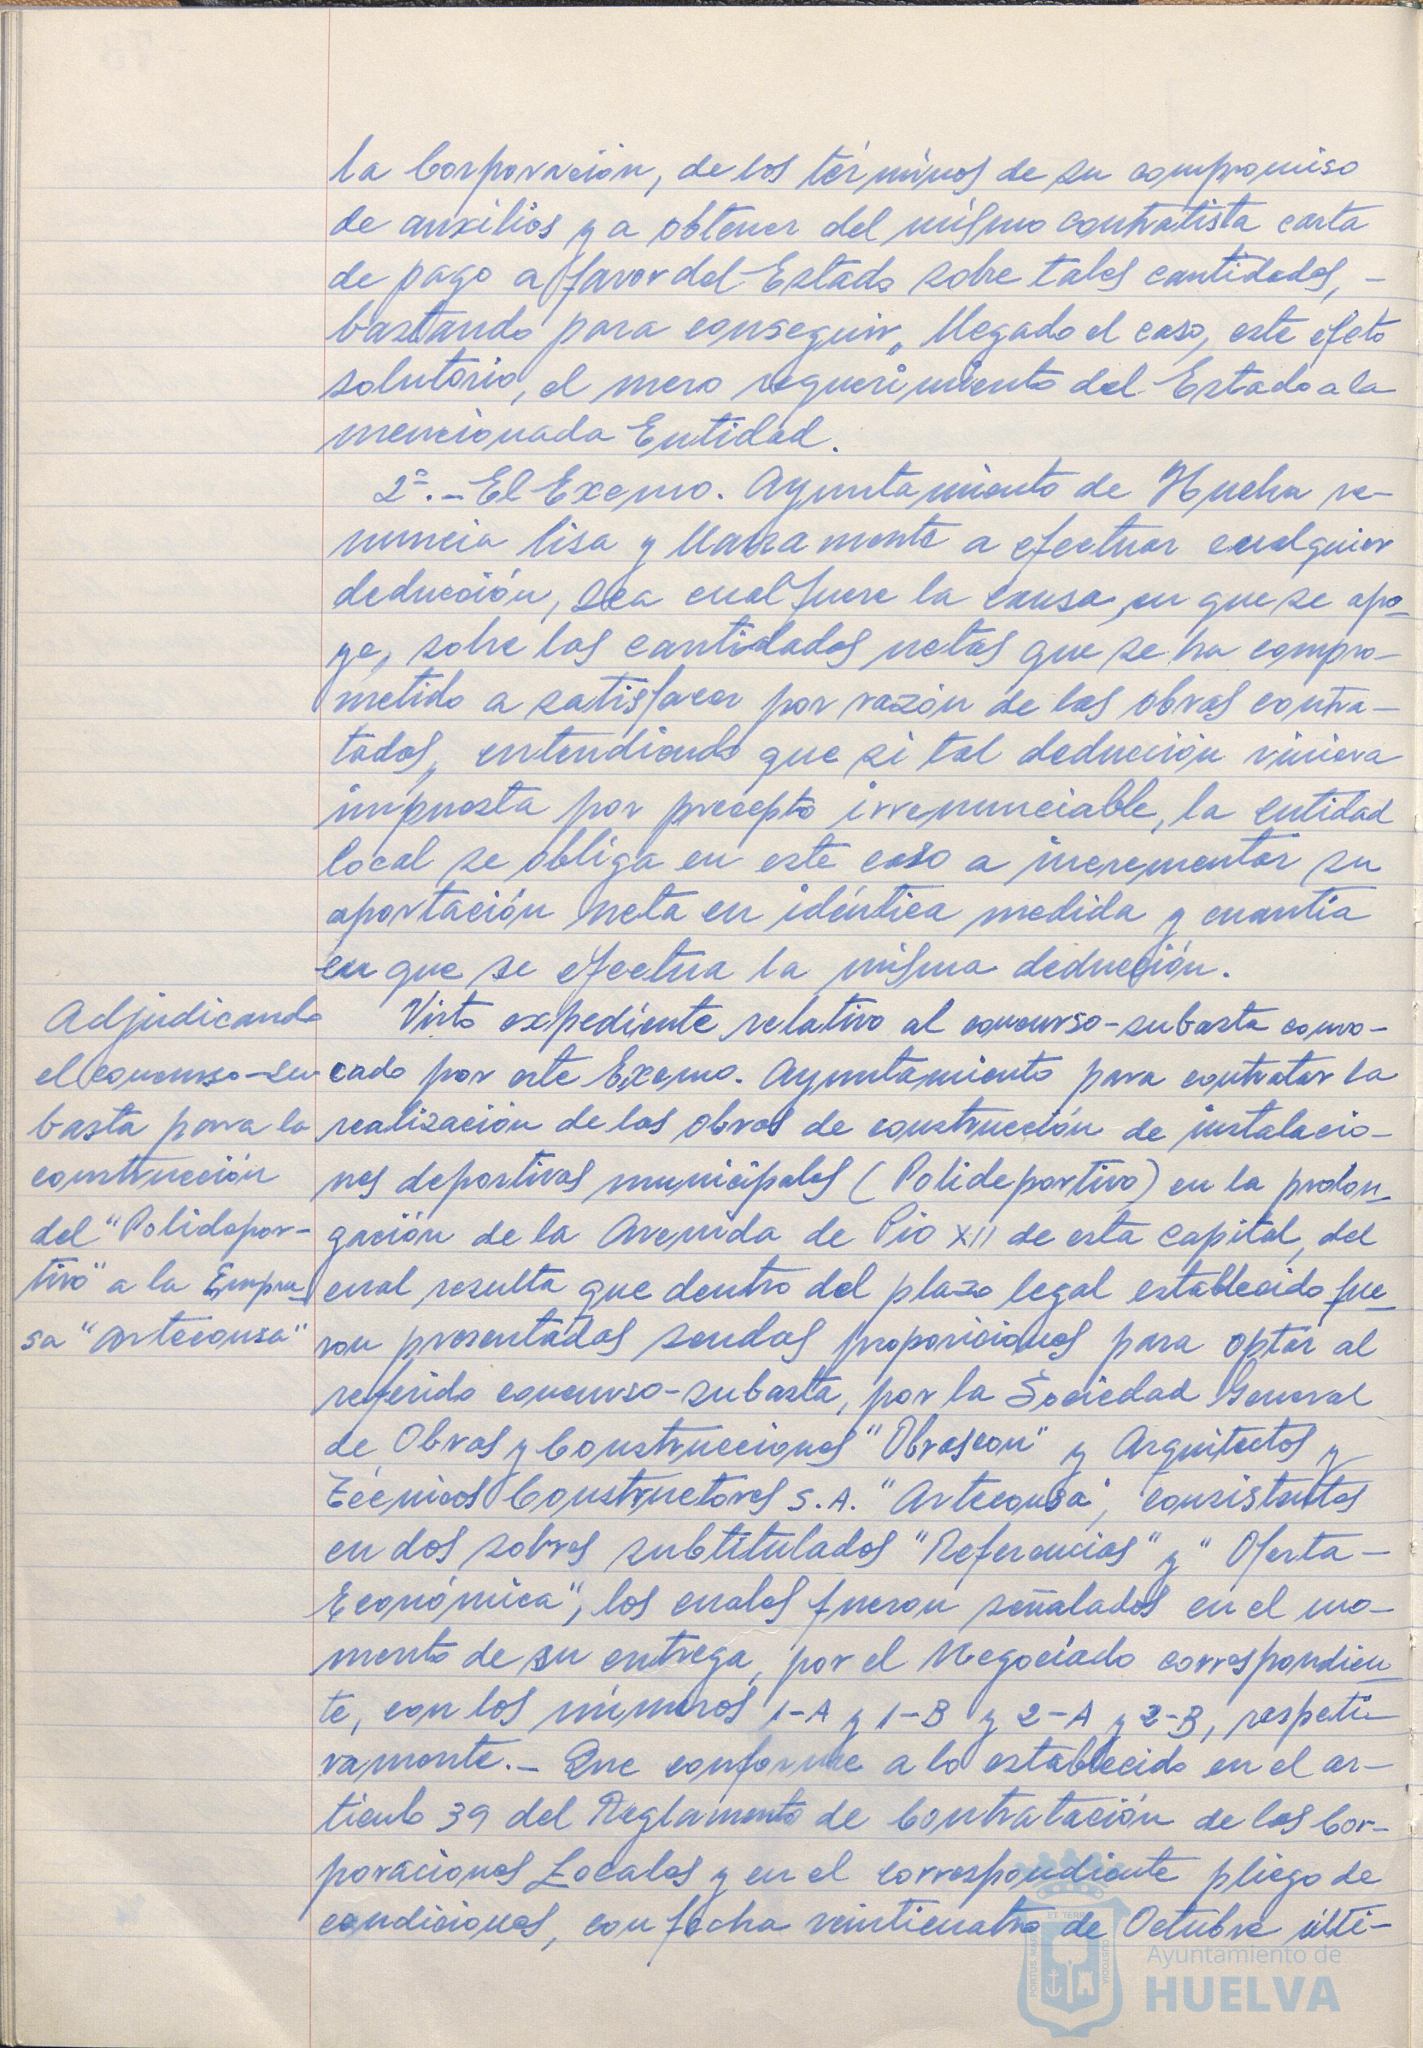 la Corporación, de los términos de su compromiso
de auxilios y a obtener del mismo contratista carta
de pago a favor del Estado sobre tales cantidades, -
bastando para conseguir, llegado el caso, este efeto
solutorio, el mero requerimiento del Estado a la
mencionada Entidad.
2º.- El Excmo. Ayuntamiento de Huelva re-
nuncia lisa y llanamente a efectuar cualquier
deducción, sea cual fuere la causa en que se apo-
ye, sobre las cantidades netas que se ha compro-
metido a satisfacer por razón de las obras contra-
tadas, entendiendo que si tal deducción viniera
impuesta por precepto irrenunciable, la entidad
local se obliga en este caso a incrementar su
aportación neta en idéntica medida y cuantía
en que se efectua la misma deducción.
Adjudicando
el concurso-su
basta para la
construcción
del "Polidepor-
tivo" a la Empre-
sa "Arteconsa"
Visto expediente relativo al concurso-subasta convo-
cado por este Excmo. Ayuntamiento para contratar la
realización de las obras de construcción de instalacio-
nes deportivas municipales (Polideportivo) en la prolon-
gación de la Avenida de Pio XII de esta capital, del
cual resulta que dentro del plazo legal establecido fue-
ron presentadas sendas proposiciones para optar al
referido concurso-subasta, por la Sociedad General
de Obras y Construcciones "Obrascon" y Arquitectos y
Técnicos Constructores S.A. "Arteconsa", consistentes
en dos sobres subtitulados "Referencias" y "Oferta-
Económica", los cuales fueron señalados en el mo-
mento de su entrega, por el Negociado correspondien-
te, con los números 1-A y 1-B y 2-A y 2-B, respeti-
vamente.- Que conforme a lo establecido en el ar-
tículo 39 del Reglamento de Contratación de las Cor-
poraciones Locales y en el correspondiente pliego de
condiciones, con fecha veinticuatro de Octubre últi-
Ayuntamiento de
HUELVA